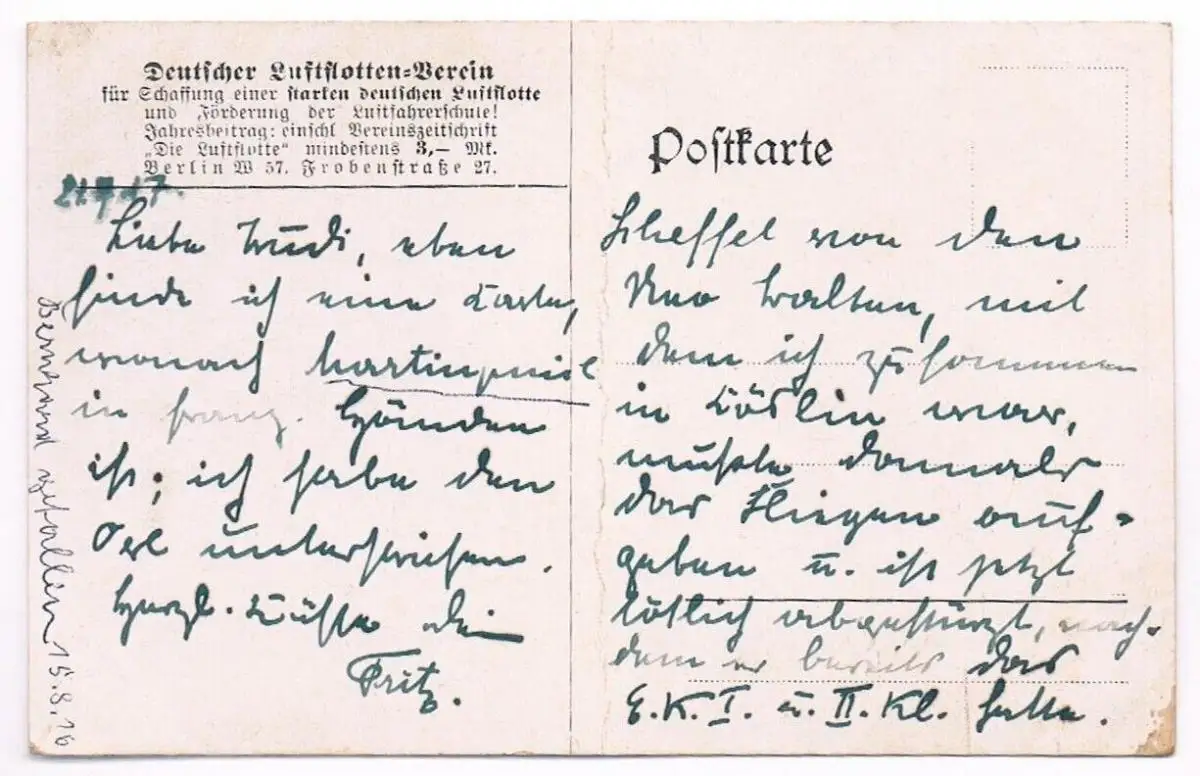 Deutscher Luftflotten-Verein
für Schaffung einer starken deutschen Luftflotte
und Förderung der Luftfahrerschule!
Jahresbeitrag: einschl Vereinszeitschrift
„Die Luftflotte“ mindestens 3,— Mk.
Berlin W 57. Frobenstraße 27.
17.
Liebe Trudi, eben
finde ich eine Karte,
wonach
in franz. Händen
ist; ich habe den
Ort unterstrichen.
Herzl. Küsse dein
Fritz.
Bernhard gefallen 15.8.16
Postkarte
Scheffel von den
mit
dem ich zusammen
in Köslin war,
mußte damals
das Fliegen auf-
geben u. ist jetzt
tötlich abgestürzt, nach-
dem er bereits das
E.K.I. u. II. Kl. hatte.